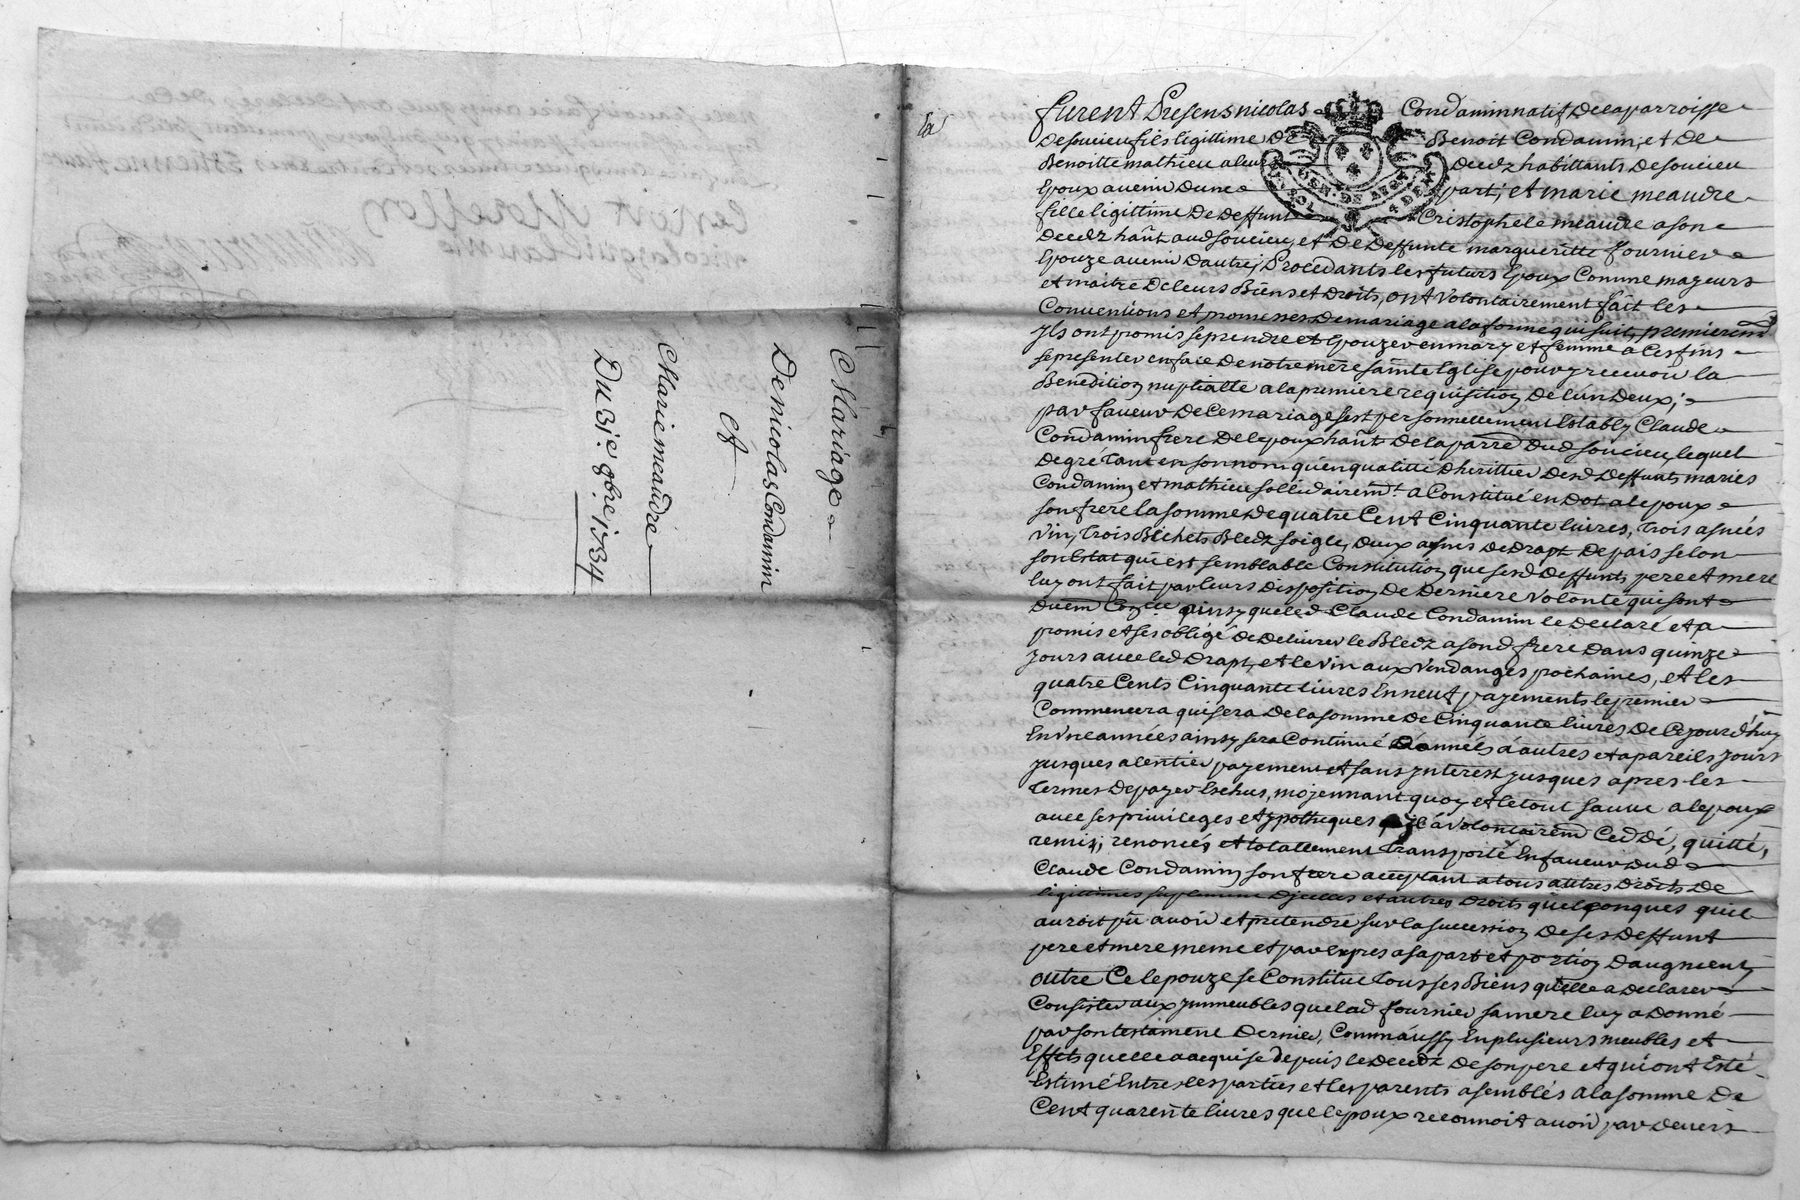 Mariage
De nicolas Condamin
Et
Marie meandre
Du 31e. 8bre. 1734
furent Presens nicolas Condamin natif de la parroisse
de soucieu fils ligittime de Benoit Condamin, et de
Benoitte mathieu a leur decedz habittants de soucieu
Epoux avenir dune part; et marie meandre
fille ligittime de deffunt Cristophe le meandre a son
decedz hañt aud soucieu, et de deffunte margueritte fournier
Epouze avenir dautre, Procedants les futurs Epoux Comme mayeurs
et maitre de leurs Biens et droits, ont volontairement fait les
Conventions et promesses de mariage a la forme qui suit, premierem̃t
jls ont promis se prendre et Epouzer en mary et femme a Ces fins
se presenter en face de notre mere sainte Eglise pour y recevoir la
Benedition nuptialle a la premiere requisition de lun deux;
par faveur de Ce mariage sest personnellement Estably Claude
Condamin frere de lepoux hañt de la parre dud soucieu, lequel
de gré tant en son nom quen qualitté dherittier desd deffunts maries
Condamin et mathieu sollidairem̃t. a Constitué en dot a lepoux
son frere la somme de quatre Cent Cinquante livres, trois asnées
vin, trois Bichets Bledz seigle, deux aunes de drapt de pais selon
son Estat qui est semblable Constitution que sesd deffunts pere et mere
luy ont fait par leurs disposition de derniere volonté qui sont
ainsy que led Claude Condamin le declare et a
promis et ses obligé de delivrer le Bledz a sond frere dans quinze
jours avec led drapt, et le vin aux vendanges pochaines, et les
quatre Cents Cinquante livres En neuf payements le premier
Commencera qui sera de la somme de Cinquante livres de Ce jourdhuy
En une années ainsy sera Continué dannées á autres et a pareils jours
jusques a lentier payement et sans jnterest jusques apres les
termes de payer Eschus, mojennant quoy et le tout sauve a lepoux
avec ses privileges et ypotheques jl á volontairem̃ Ceddé, quitté,
remis, renoncés et totallement transporté En faveur dud
Claude Condamin son frere acceptant a tous autres droits de
ligittimes suplement djcelles et autres droits quelconques quil
auroit pü avoir et pretendre sur la succession de ses deffunt
pere et mere meme et par Expres a sa part et portion daugment,
outre Ce lepouze se Constitue tous ses Biens quelle a declarer
Consister aux jmmeubles que lad fournier sa mere luy a donné
par son testament dernier, Comm aussy En plusieurs meubles et
Effets quelle a acquise depuis le decedz de son pere et qui ont Esté
Estimé Entre les parties et les parents asemblés a la somme de
Cent quarente livres que lepoux reconnoit avoir par devers